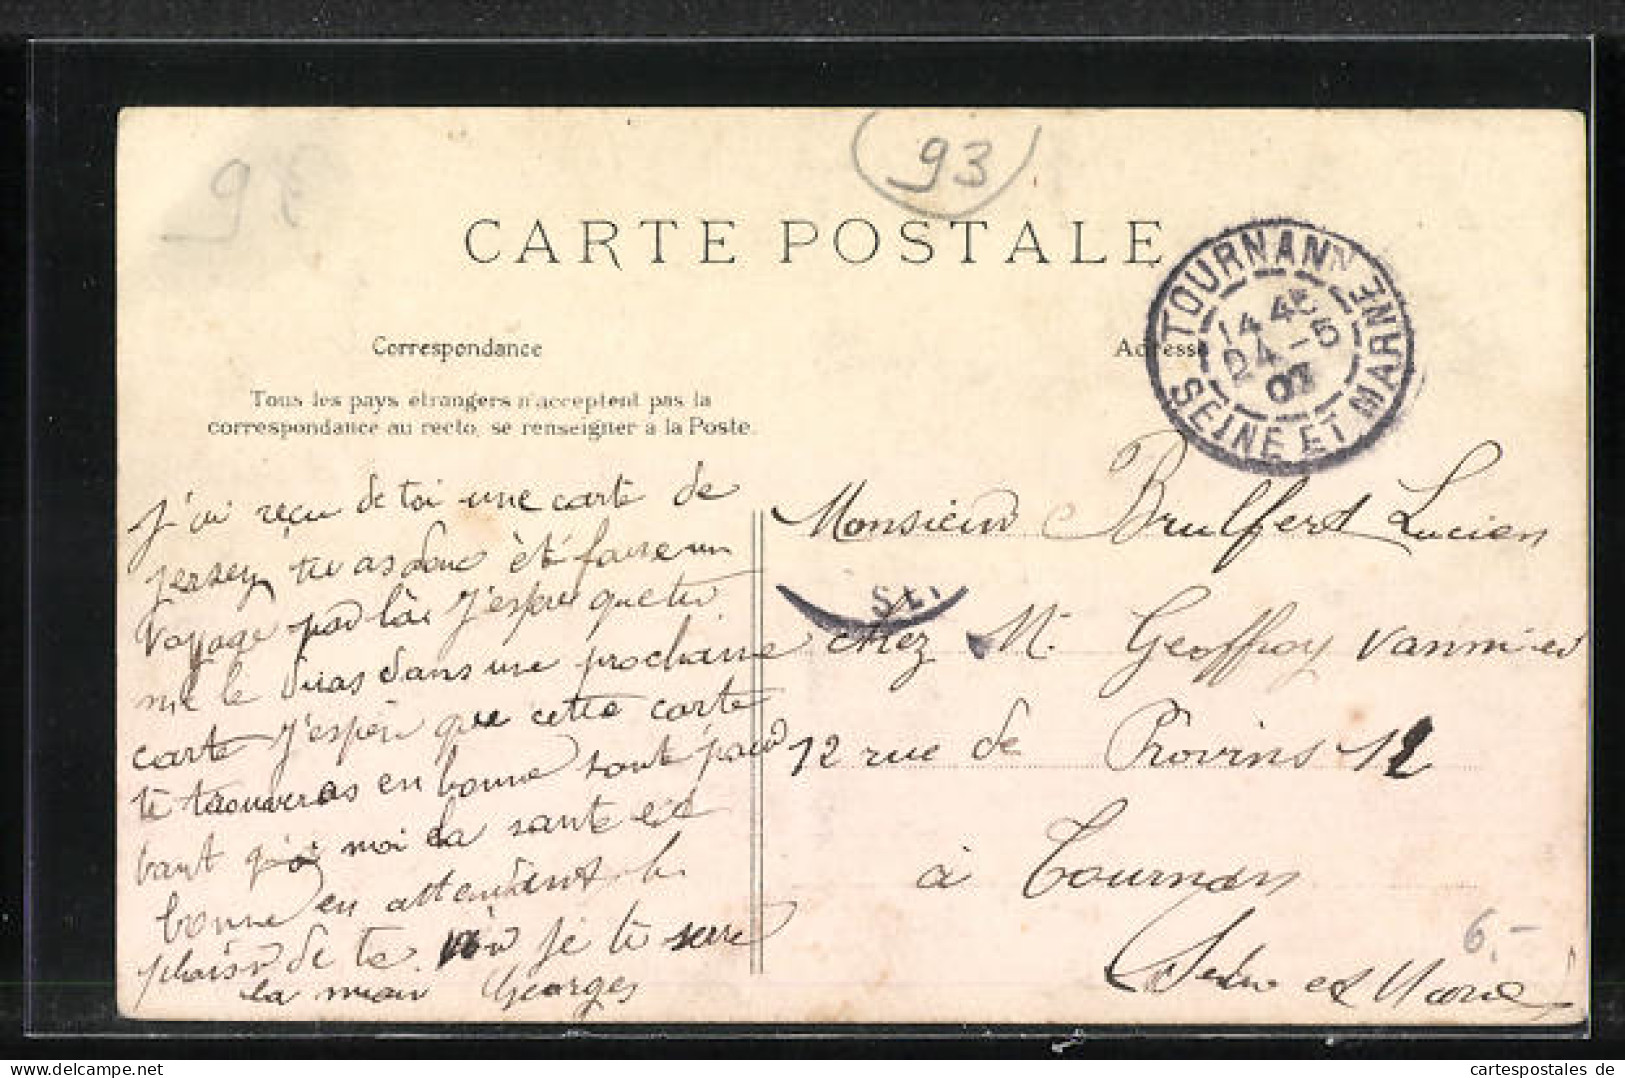 93
CARTE POSTALE
TOURNAN
SEINE ET MARNE
14 45
24 -5
07
Correspondance
Adresse
Tous les pays etrangers n'acceptent pas la
correspondance au recto, se renseigner a la Poste.
j'ai reçu de toi une carte de
jersey tu as donc été faire un
voyage par là. J'espère que tu
me le diras dans une prochaine
carte J'espère que cette carte
te trouveras en bonne santé pour
tant qu'à moi la santé est
bonne en attendant le
plaisir de te voir je te serre
la main Georges
Monsieur Brulfert Lucien
SEI
chez M. Geoffroy Vannier
12 rue de Provins 12
à Tournan
Seine et Marne
6.-
www.cartespostales.de
cartespostales de